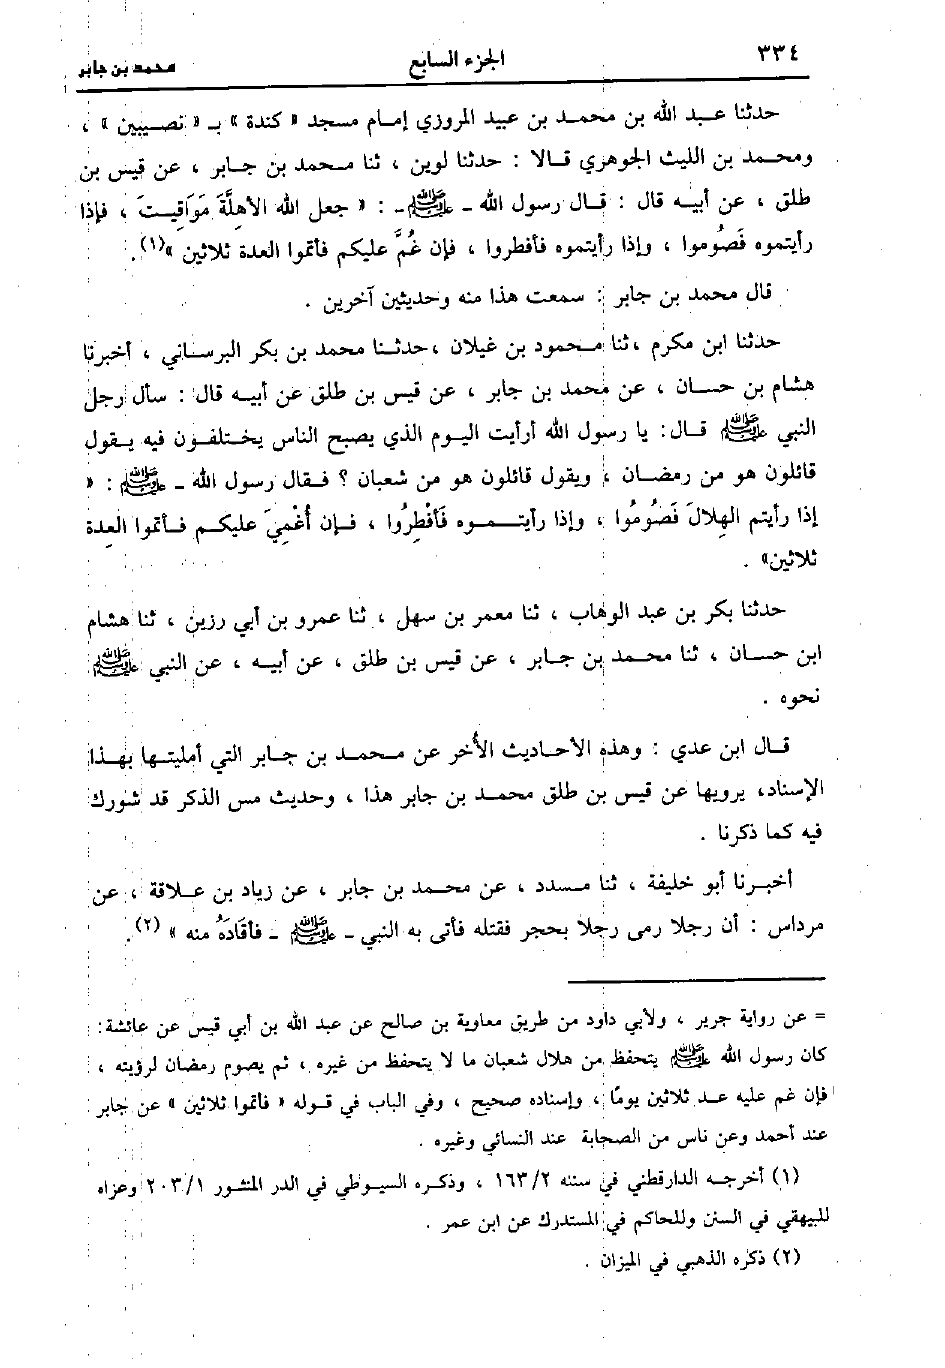 ٣٣٤ الجزء السابع محمد بن جابر
حدثنا عبد الله بن محمد بن عبيد المروزي إمام مسجد « كندة » بـ « نصيبين » ،
ومحمد بن الليث الجوهري قالا : حدثنا لوين ، ثنا محمد بن جابر ، عن قيس بن
طلق ، عن أبيه قال : قال رسول الله ـ ﷺ ـ : « جعل الله الأهِلَّةَ مَوَاقِيتَ ، فإذا
رأيتموه فَصُوموا ، وإذا رأيتموه فأفطروا ، فإن غُمَّ عليكم فأتموا العدة ثلاثين »(١).
قال محمد بن جابر : سمعت هذا منه وحديثين آخرين .
حدثنا ابن مكرم ، ثنا محمود بن غيلان ، حدثنا محمد بن بكر البرساني ، أخبرنا
هشام بن حسان ، عن محمد بن جابر ، عن قيس بن طلق عن أبيه قال : سأل رجل
النبي ﷺ قال: يا رسول الله أرأيت اليوم الذي يصبح الناس يختلفون فيه يقول
قائلون هو من رمضان ، ويقول قائلون هو من شعبان ؟ فقال رسول الله ـ ﷺ : «
إذا رأيتم الهِلالَ فَصُومُوا ، وإذا رأيتموه فَأَفْطِرُوا ، فإن أُغْمِيَ عليكم فأتموا العِدة
ثلاثين» .
حدثنا بكر بن عبد الوهاب ، ثنا معمر بن سهل ، ثنا عمرو بن أبي رزين ، ثنا هشام
ابن حسان ، ثنا محمد بن جابر ، عن قيس بن طلق ، عن أبيه ، عن النبي ﷺ
نحوه .
قال ابن عدي : وهذه الأحاديث الأُخر عن محمد بن جابر التي أمليتها بهذا
الإسناد، يرويها عن قيس بن طلق محمد بن جابر هذا ، وحديث مس الذكر قد شورك
فيه كما ذكرنا .
أخبرنا أبو خليفة ، ثنا مسدد ، عن محمد بن جابر ، عن زياد بن علاقة ، عن
مرداس : أن رجلا رمى رجلا بحجر فقتله فأتى به النبي ـ ﷺ ـ فأقَادَهُ منه » (٢).
= عن رواية جرير ، ولأبي داود من طريق معاوية بن صالح عن عبد الله بن أبي قيس عن عائشة:
كان رسول الله ﷺ يتحفظ من هلال شعبان ما لا يتحفظ من غيره ، ثم يصوم رمضان لرؤيته ،
فإن غم عليه عد ثلاثين يومًا ، وإسناده صحيح ، وفي الباب في قوله « فأتموا ثلاثين » عن جابر
عند أحمد وعن ناس من الصحابة عند النسائي وغيره .
(١) أخرجه الدارقطني في سننه ١٦٣/٢ ، وذكره السيوطي في الدر المنثور ٢٠٣/١ وعزاه
للبيهقي في السنن وللحاكم في المستدرك عن ابن عمر .
(٢) ذكره الذهبي في الميزان .